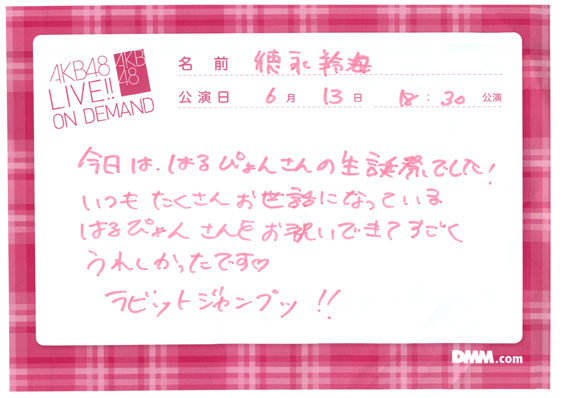 AKB48
LIVE!!
ON DEMAND
AKB
48
名前 徳永羚海
公演日 6月 13日 18:30 公演
今日は、はるぴょんさんの生誕祭でした!
いつもたくさんお世話になっている
はるぴょんさんをお祝いできてすごく
うれしかったです♡
ラビットジャンプッ!!
DMM.com